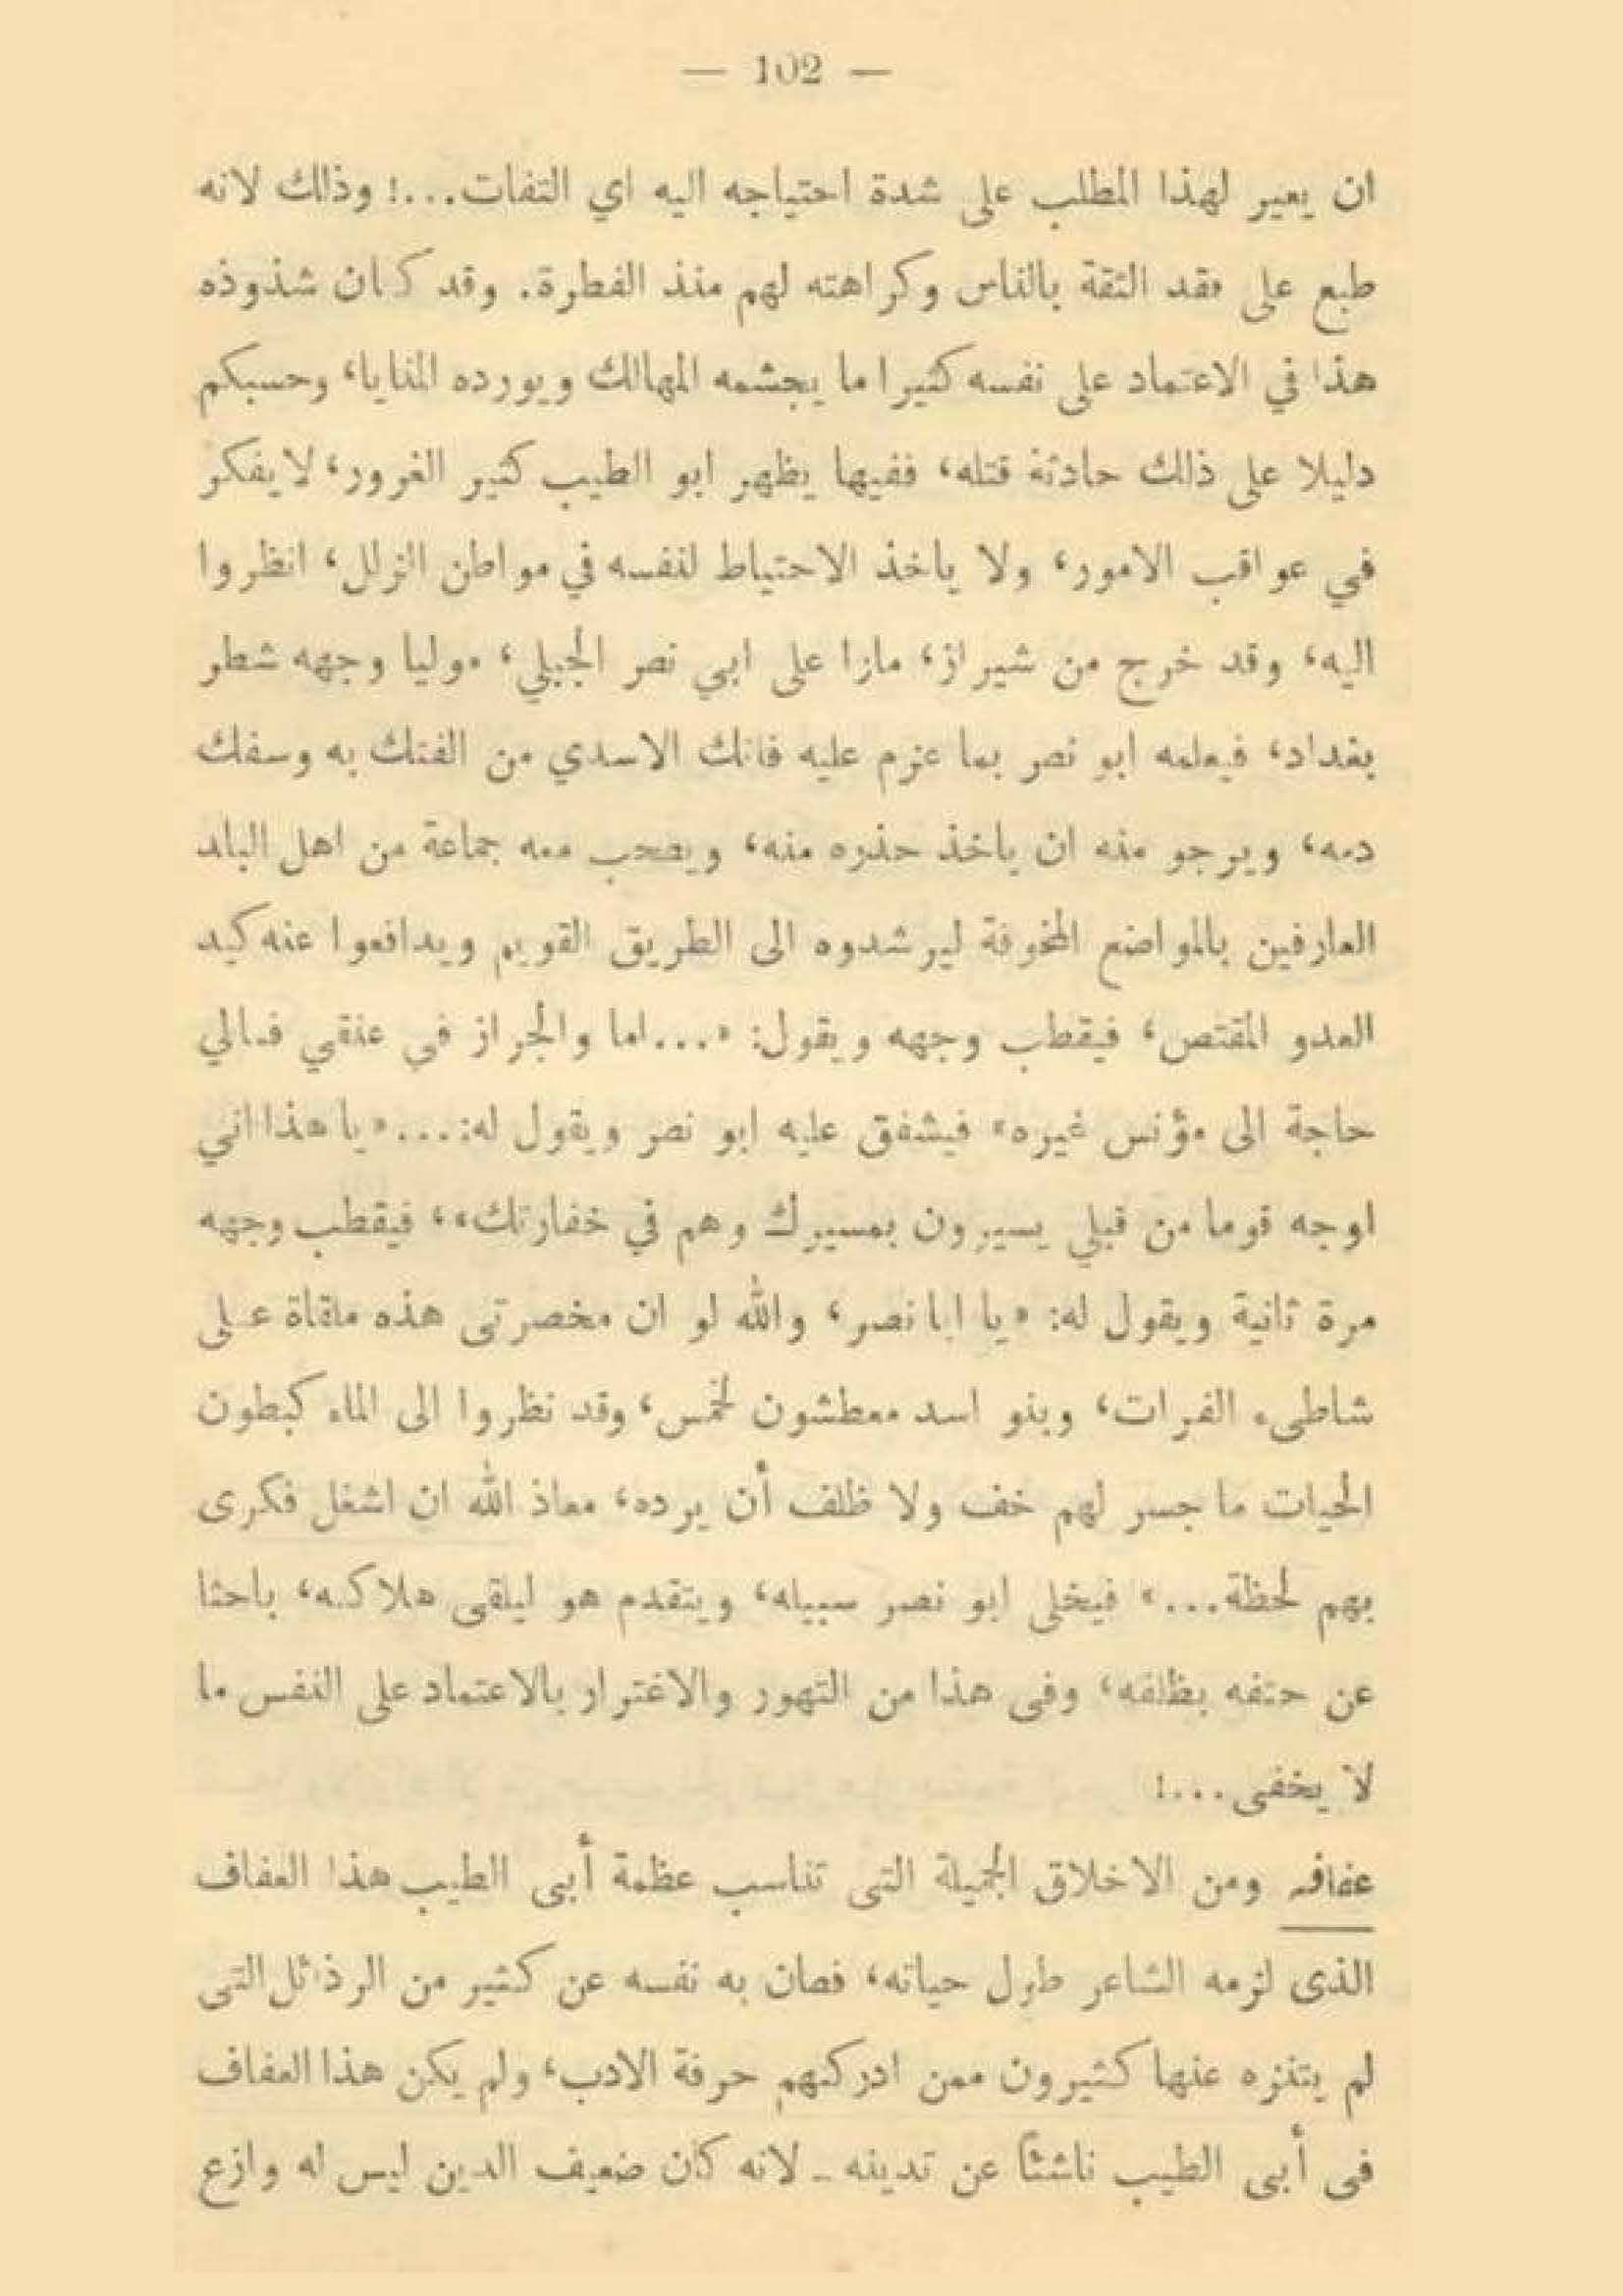 — 102 —
ان يعير لهذا المطلب على شدة احتياجه اليه اي التفات...! وذلك لانه
طبع على فقد الثقة بالناس وكراهته لهم منذ الفطرة. وقد كان شذوذه
هذا في الاعتماد على نفسه كثيرا ما يجشمه المهالك ويورده المنايا، وحسبكم
دليلا على ذلك حادثة قتله، ففيها يظهر ابو الطيب كثير الغرور، لا يفكر
في عواقب الامور، ولا ياخذ الاحتياط لنفسه في مواطن الزلل، انظروا
اليه، وقد خرج من شيراز، مارا على ابي نصر الجبلي، موليا وجهه شطر
بغداد، فيعلمه ابو نصر بما عزم عليه فاتك الاسدي من الفتك به وسفك
دمه، ويرجو منه ان ياخذ حذره منه، ويصحب معه جماعة من اهل البلد
العارفين بالمواضع المخوفة ليرشدوه الى الطريق القويم ويدافعوا عنه كيد
العدو المقتص، فيقطب وجهه ويقول: «...اما والجراز في عنقي فمالي
حاجة الى مؤنس غيره» فيشفق عليه ابو نصر ويقول له:...«يا هذا اني
اوجه قوما من قبلي يسيرون بمسيرك وهم في خفارتك»، فيقطب وجهه
مرة ثانية ويقول له: «يا ابا نصر، والله لو ان مخصرتى هذه ملقاة على
شاطىء الفرات، وبنو اسد معطشون لخمس، وقد نظروا الى الماء كبطون
الحيات ما جسر لهم خف ولا ظلف أن يرده، معاذ الله ان اشغل فكرى
بهم لحظة...» فيخلى ابو نصر سبيله، ويتقدم هو ليلقى هلاكه، باحثا
عن حتفه بظلفه، وفى هذا من التهور والاغترار بالاعتماد على النفس ما
لا يخفى...!
عفافه ومن الاخلاق الجميلة التى تناسب عظمة أبى الطيب هذا العفاف
الذى لزمه الشاعر طول حياته، فصان به نفسه عن كثير من الرذائل التى
لم يتنزه عنها كثيرون ممن ادركتهم حرفة الادب، ولم يكن هذا العفاف
فى أبى الطيب ناشئا عن تدينه - لانه كان ضعيف الدين ليس له وازع